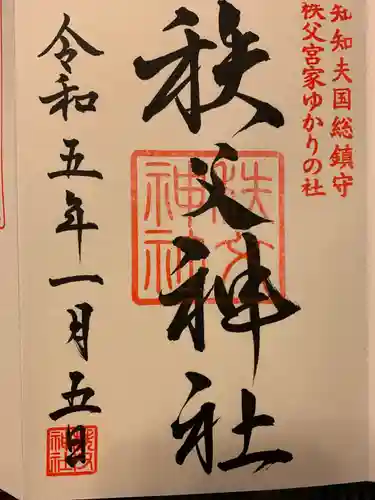 知知夫国総鎮守
秩父宮家ゆかりの社
秩父神社
秩父神社
令和五年一月五日